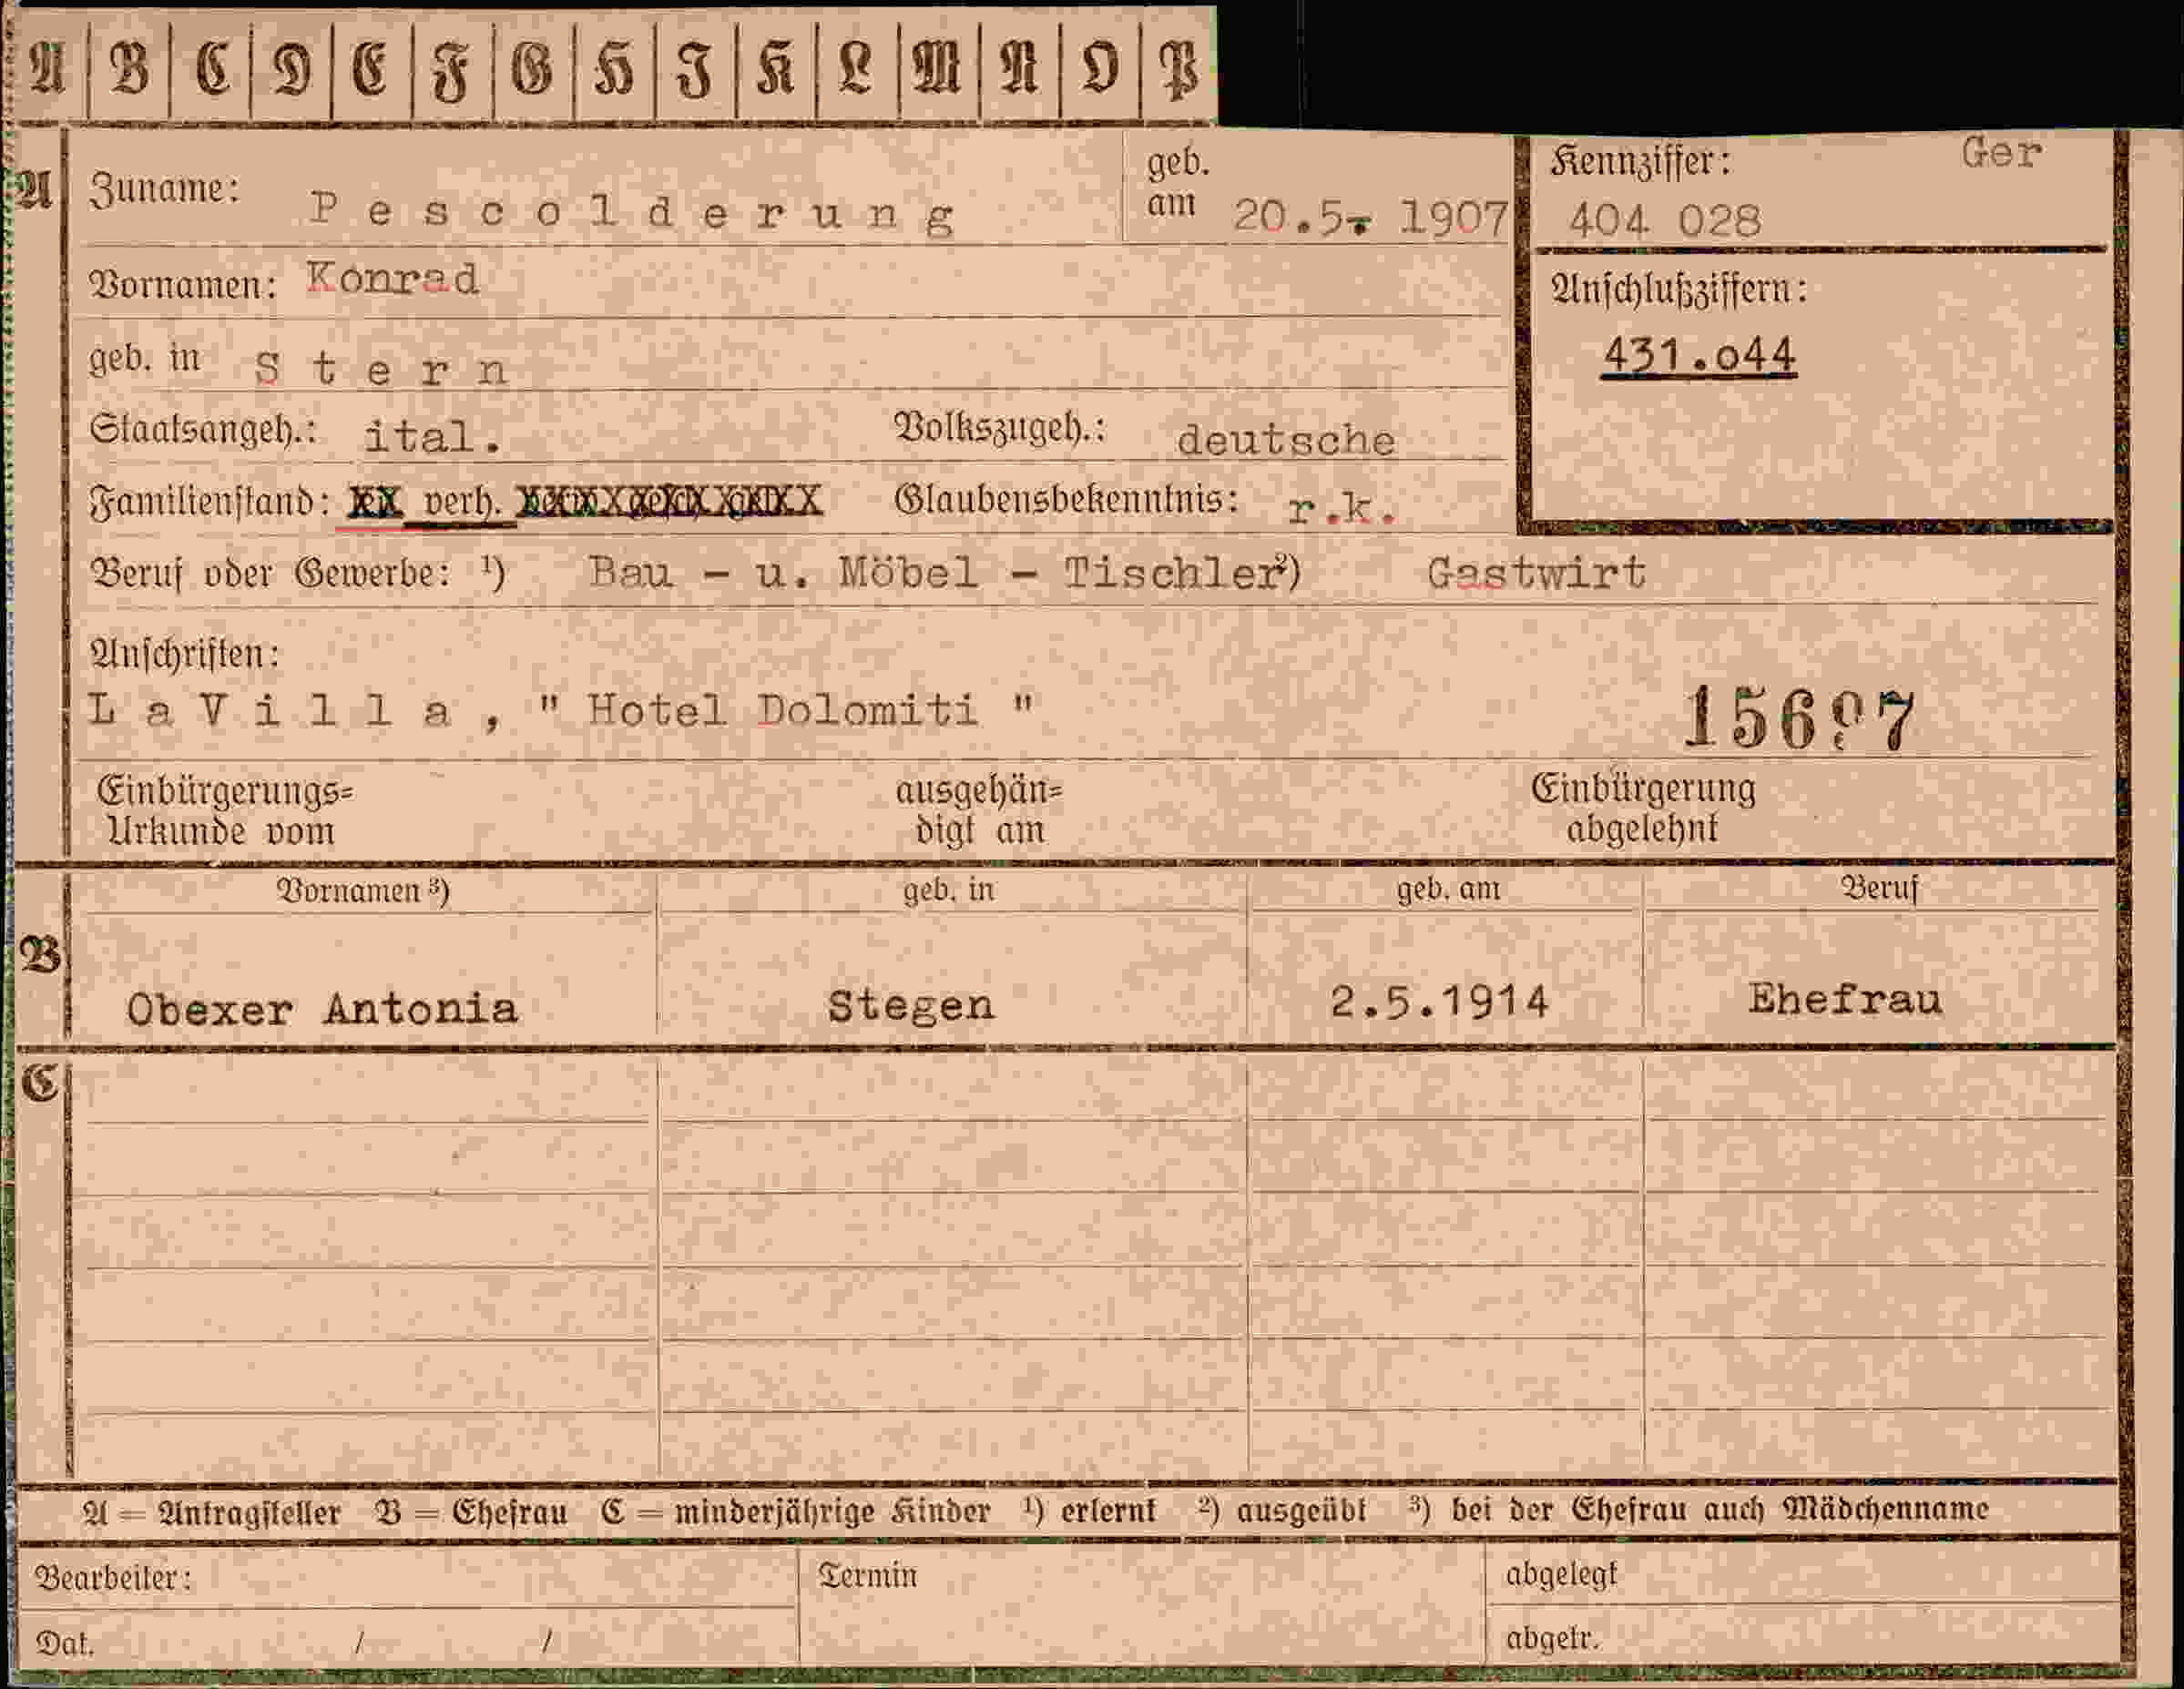 A B C D E F G H I K L M N O P
A Zuname: Pescolderung geb. am 20.5. 1907 Kennziffer: Ger
404 028
Vornamen: Konrad Anschlußziffern:
431.o44
geb. in Stern
Staatsangeh.: ital. Volkszugeh.: deutsche
Familienstand: verh. Glaubensbekenntnis: r.k.
Beruf oder Gewerbe: ¹) Bau - u. Möbel - Tischler ²) Gastwirt
Anschriften:
LaVilla, " Hotel Dolomiti "
Einbürgerungs= ausgehän= Einbürgerung
Urkunde vom digt am abgelehnt
Vornamen ³) geb. in geb. am Beruf
B Obexer Antonia Stegen 2.5.1914 Ehefrau
C
A = Antragsteller B = Ehefrau C = minderjährige Kinder ¹) erlernt ²) ausgeübt ³) bei der Ehefrau auch Mädchenname
Bearbeiter: Termin abgelegt
Dat. / / abgetr.